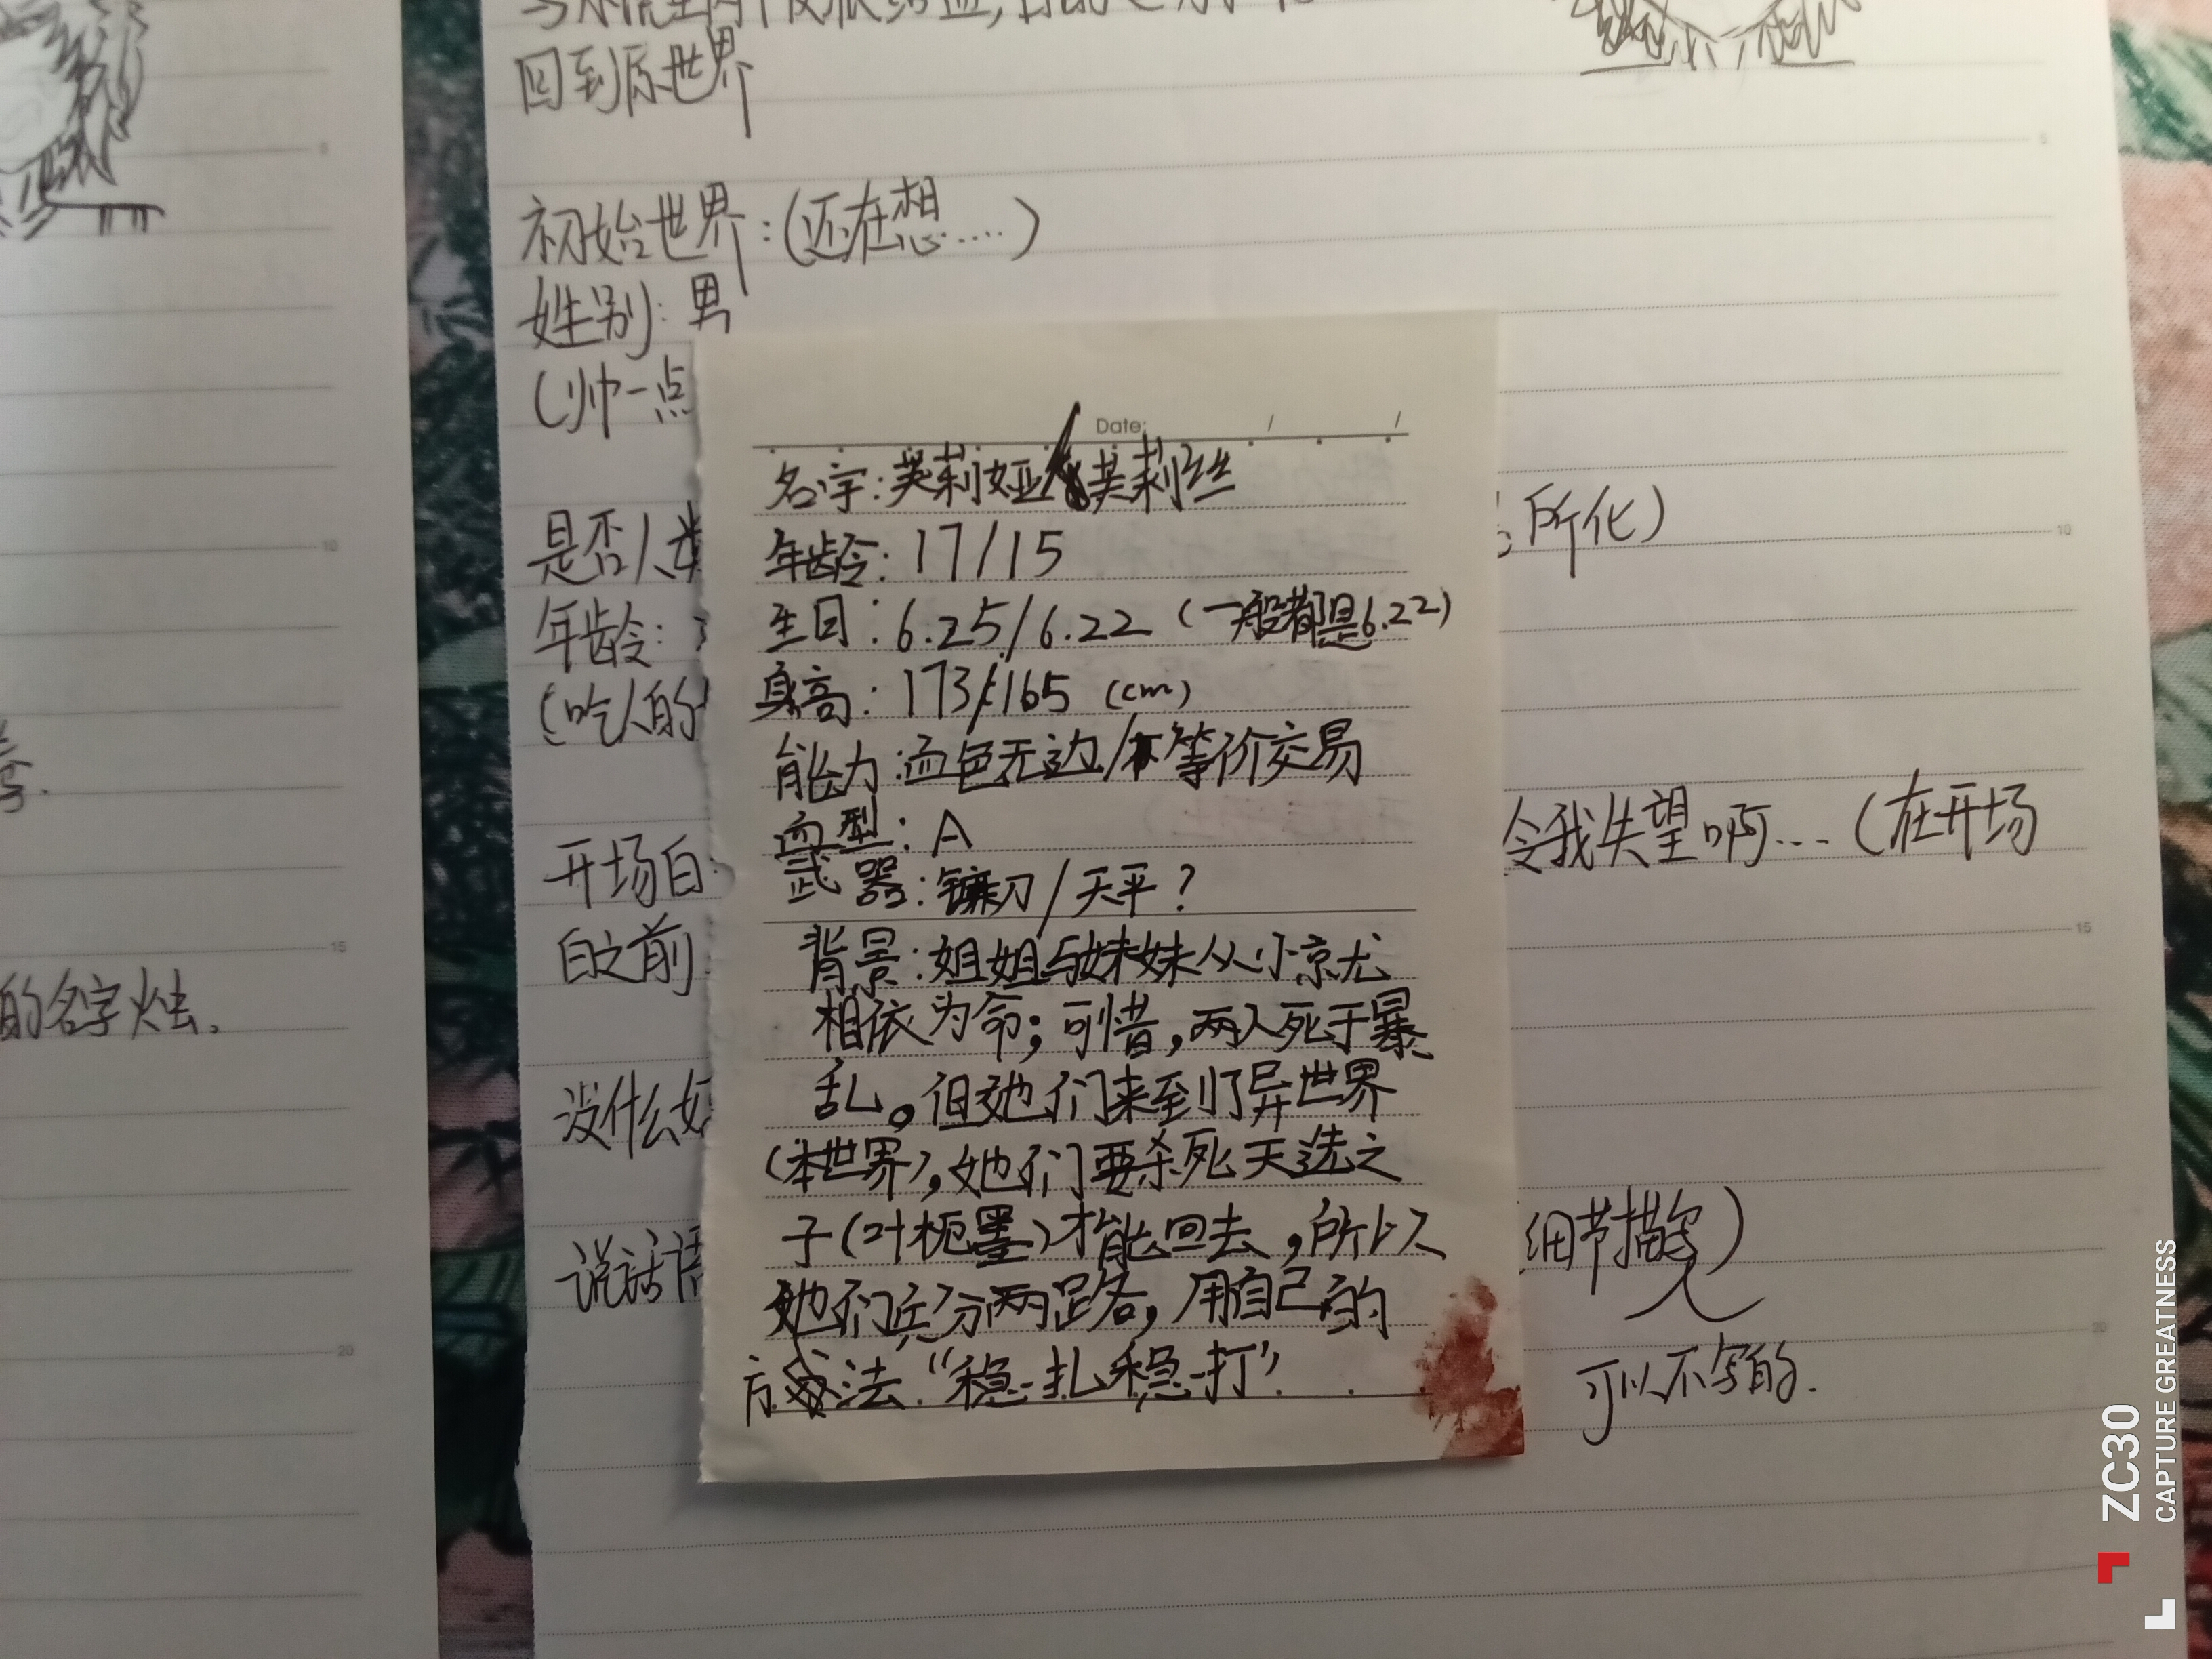 回到原世界
初始世界:(还在想....)
姓别:男
(帅一点
Date: / /
名字:芙莉娅/芙莉丝
年龄:17/15
生日:6.25/6.22 (一般都是6.22)
身高:173/165 (cm)
能力:血色无边/不等价交易
血型:A
武器:镰刀/天平?
背景:姐姐与妹妹从小京尤
相依为命;可惜,两人死于暴
乱。但她们来到了异世界
(本世界),她们要杀死天选之
子(叶枙墨)才能回去,所以
她们兵分两路,用自己的
方法"稳扎稳打".
是否人类
所化)
年龄:
(吃人的
开场白:
令我失望啊...(在开场
白之前
没什么好
说话语
细节描写)
可以不写的.
的名字火虫。
5
10
15
20
8
10
15
20
ZC30
CAPTURE GREATNESS